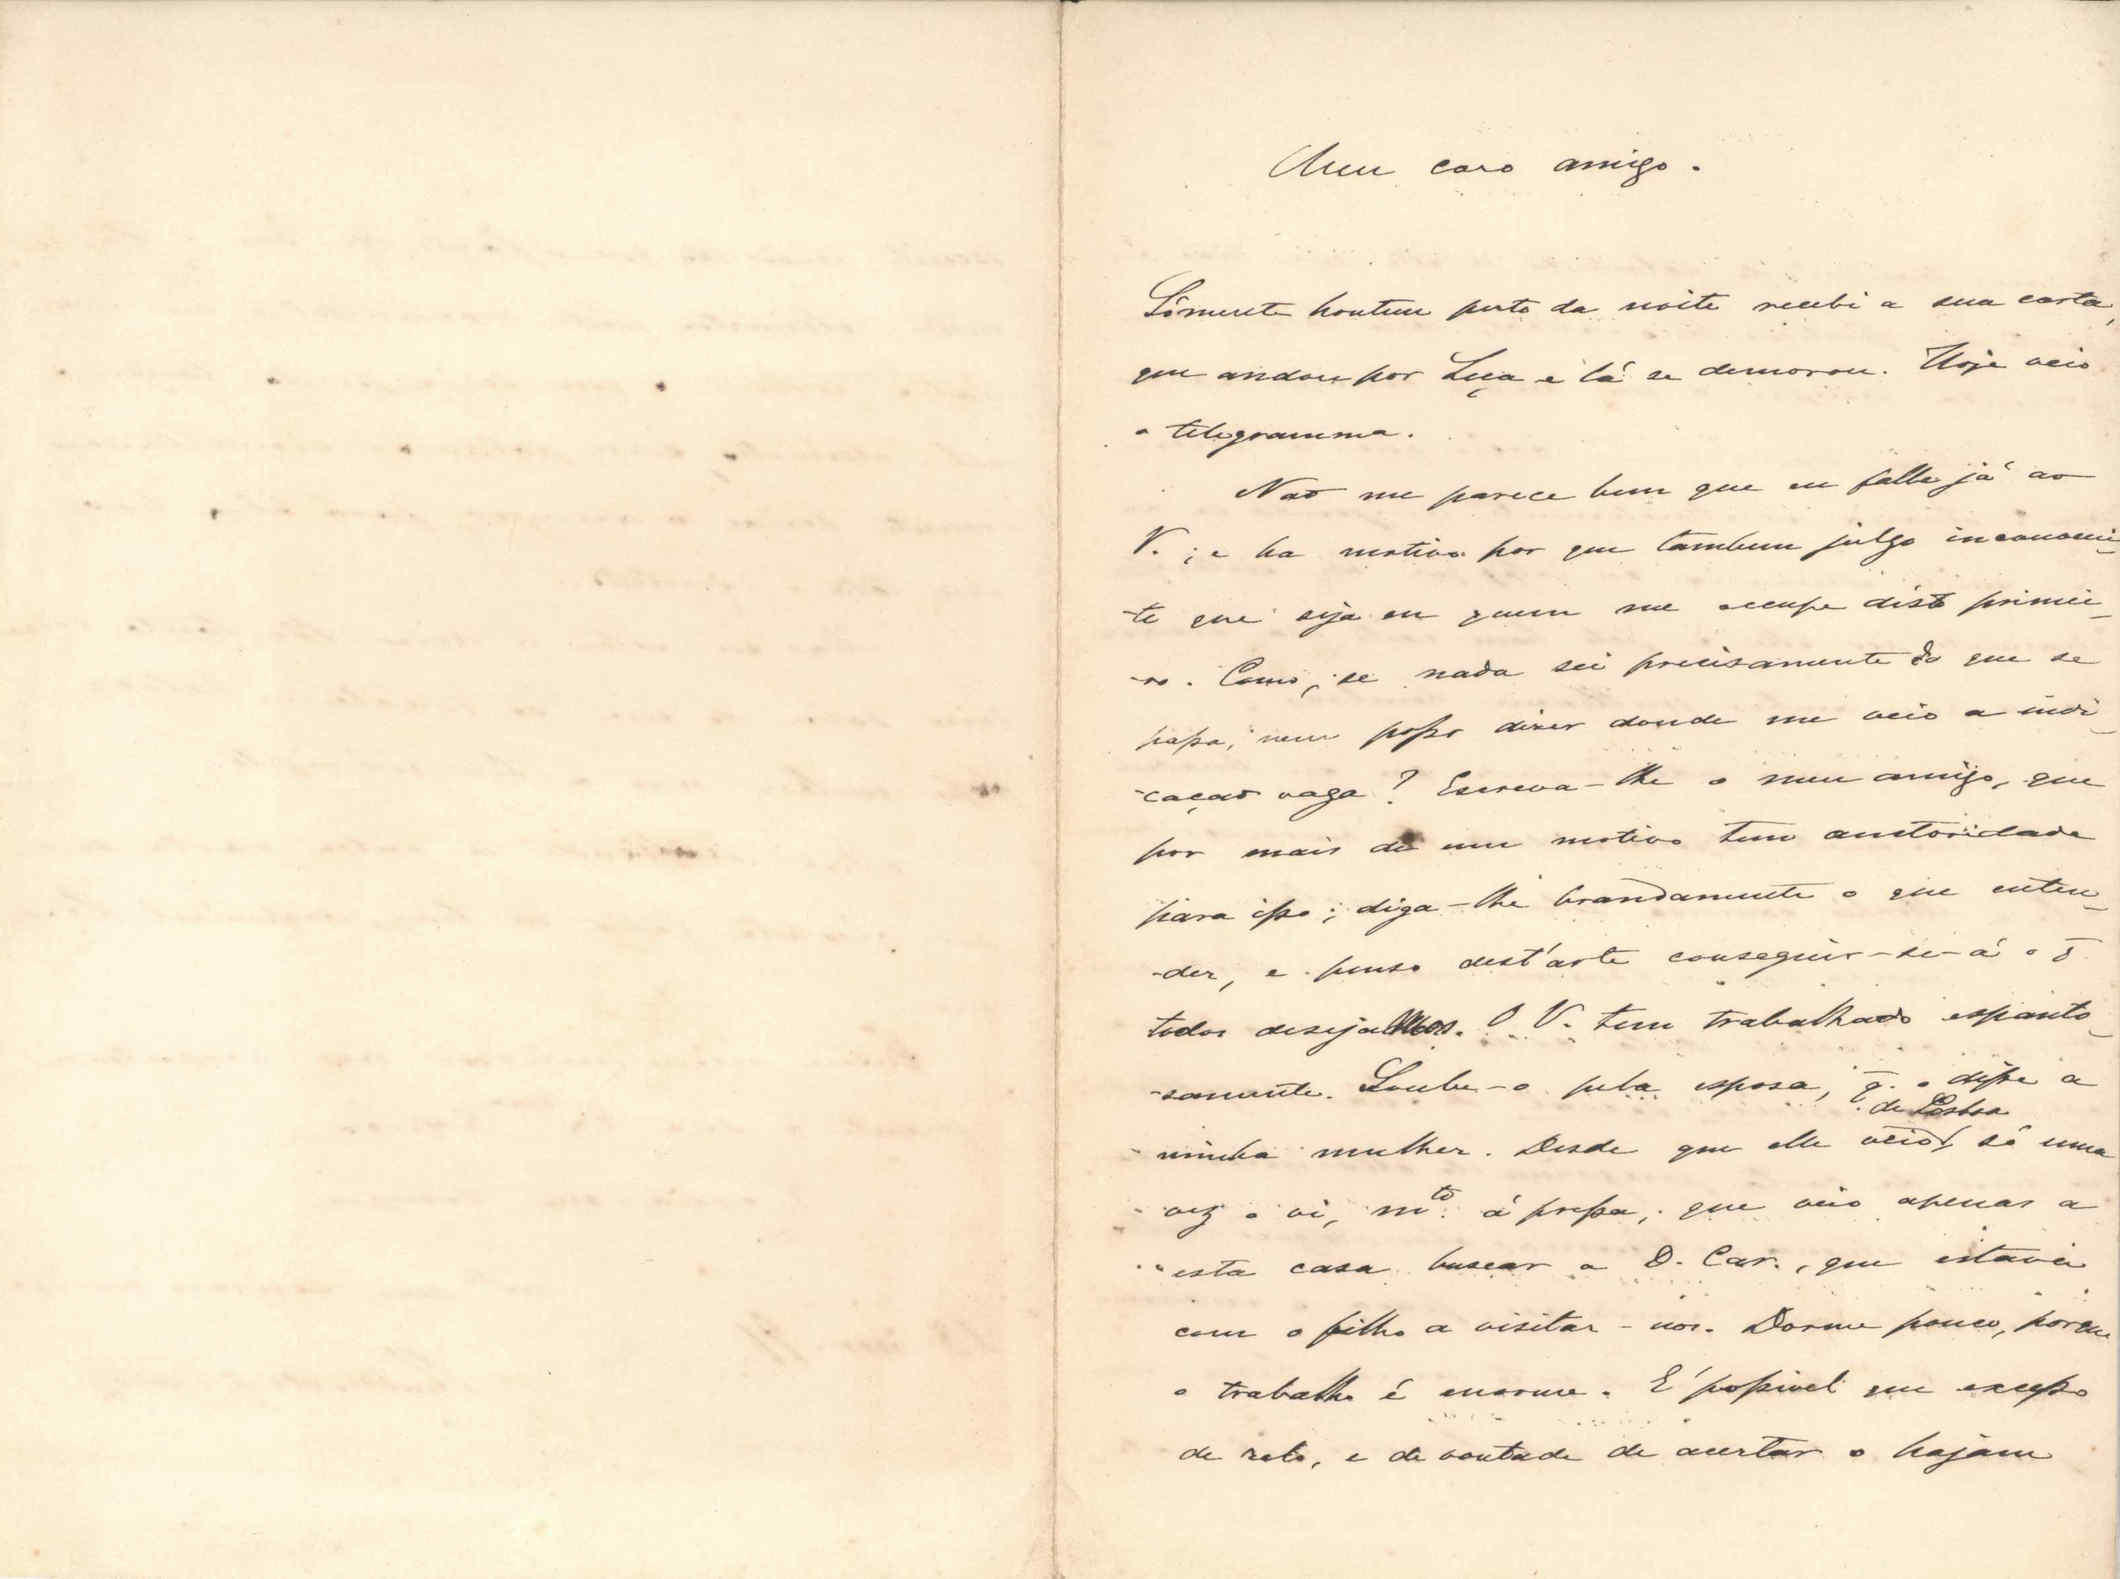 Meu caro amigo.
Sómente hontem perto da noite recebi a sua carta,
que andou por Leça e lá se demorou. Hoje veio
o telegramma.
Não me parece bem que eu falle já ao
V.; e ha motivo por que tambem julgo inconveni-
-te que seja eu quem me occupe disto primei-
-ro. Como, se nada sei precisamente do que se
passa, nem posso dizer donde me veio a indi-
-cação vaga? Escreva-lhe o meu amigo, que
por mais de um motivo tem auctoridade
para isso; diga-lhe brandamente o que enten-
-der, e penso dest'arte conseguir-se-á o q̄
todos desejamos. O V. tem trabalhado espanto-
-samente. Soube-o pela esposa, q̄. o disse a
minha mulher. Desde que elle veio de Lisboa só uma
vez o vi, mto. á pressa, que veio apenas a
esta casa buscar a D. Car., que estava
com o filho a visitar-nos. Dorme pouco, porque
o trabalho é enorme. E' possivel que excesso
de zelo, e de vontade de acertar o hajam